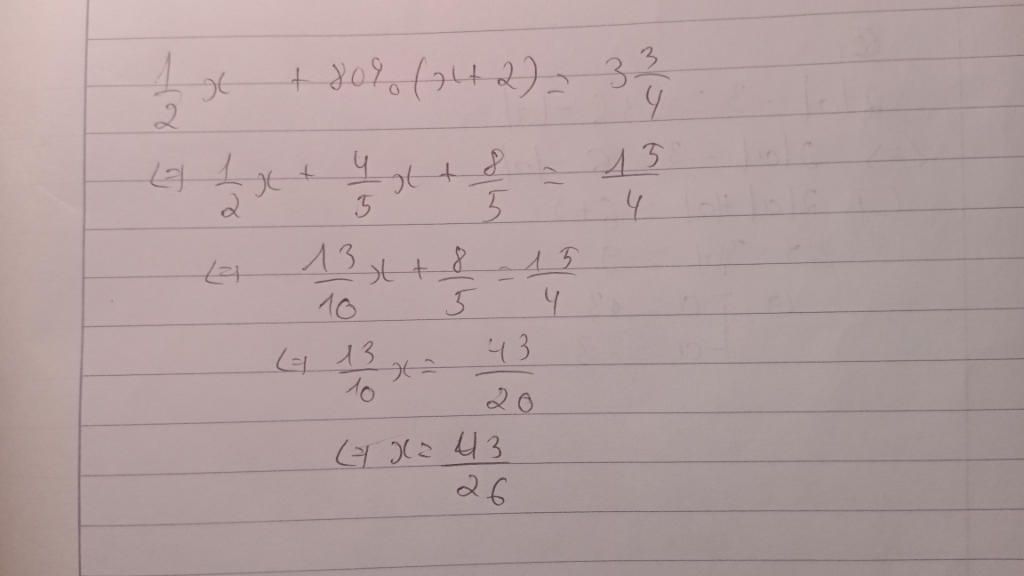 1/2 x + 80% (x + 2) = 3 3/4
<=> 1/2 x + 4/5 x + 8/5 = 15/4
<=> 13/10 x + 8/5 = 15/4
<=> 13/10 x = 43/20
<=> x = 43/26